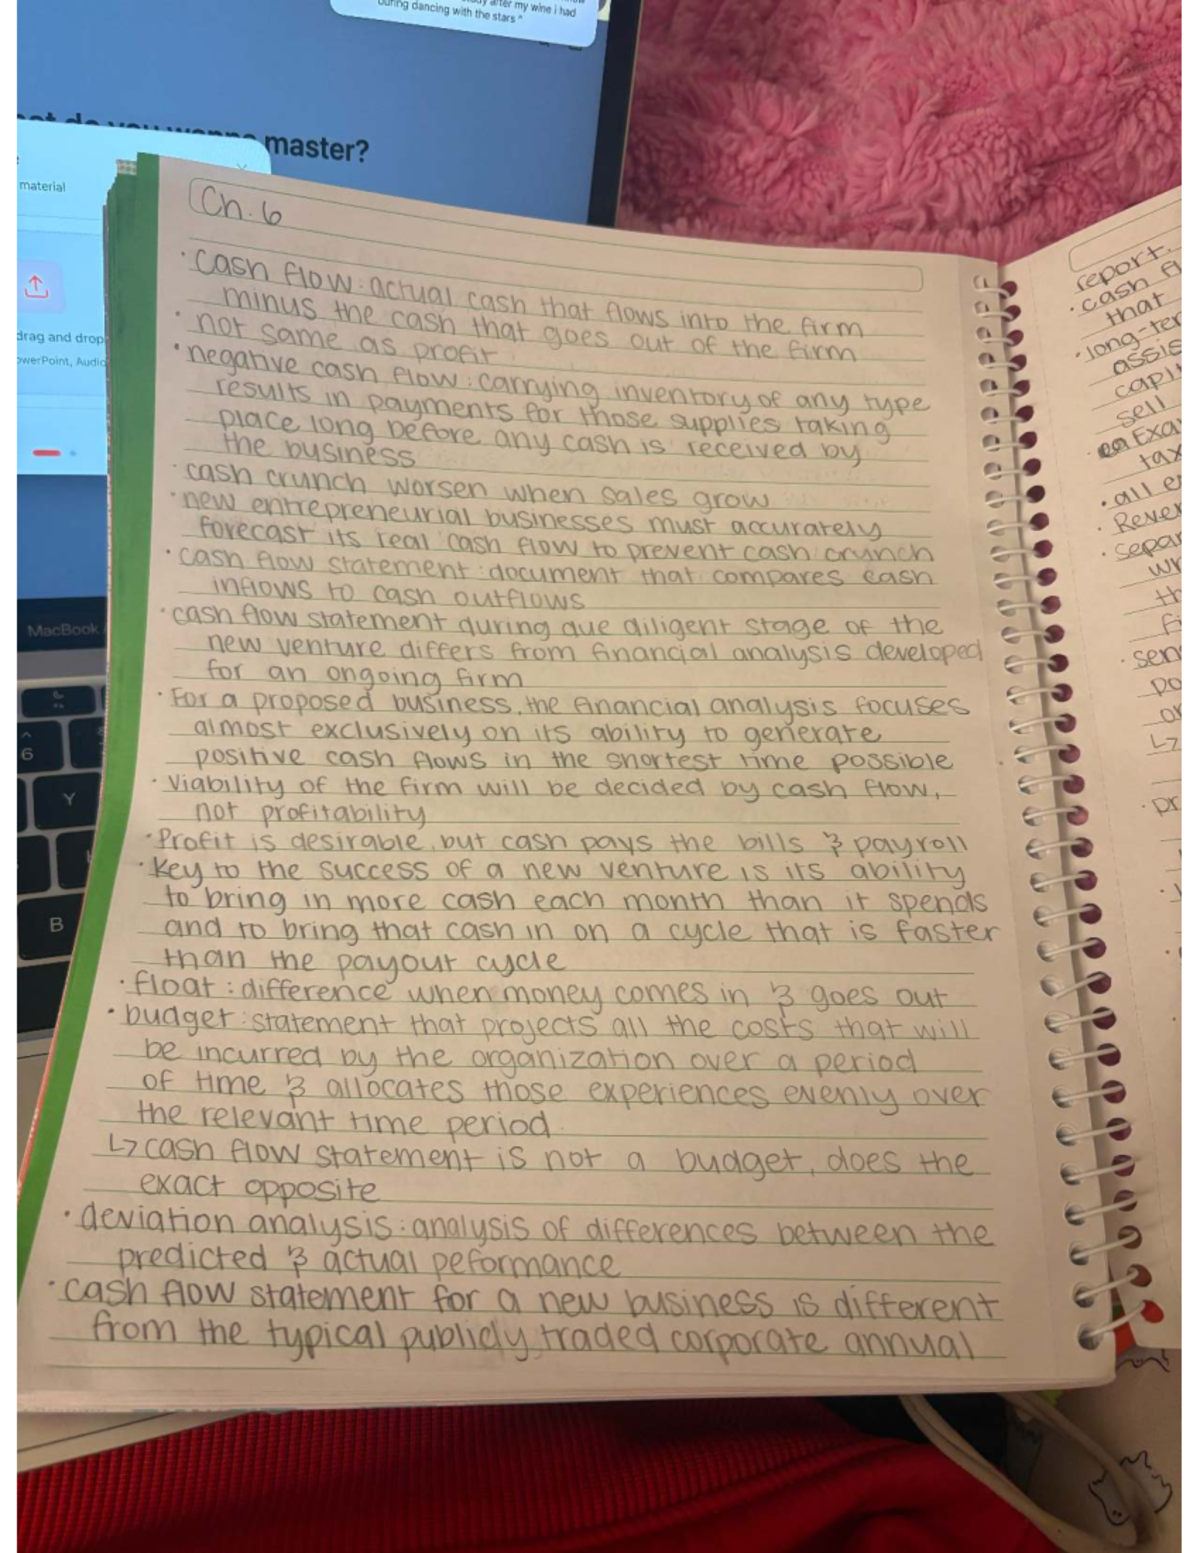 after my wine i had
during dancing with the stars"
master?
material
drag and drop
MacBook
6
Y
B
Ch. 6
· cash flow: actual cash that flows into the firm
minus the cash that goes out of the firm
· not same as profit
· negative cash flow: carrying inventory of any type
results in payments for those supplies taking
place long before any cash is received by
the business
· cash crunch worsen when sales grow
· new entrepreneurial businesses must accurately
forecast its real cash flow to prevent cash crunch
· cash flow statement: document that compares cash
inflows to cash outflows
· cash flow statement during due diligent stage of the
new venture differs from financial analysis developed
for an ongoing firm
· For a proposed business, the financial analysis focuses
almost exclusively on its ability to generate
positive cash flows in the shortest time possible
· viability of the firm will be decided by cash flow,
not profitability
· Profit is desirable, but cash pays the bills & payroll
· Key to the success of a new venture is its ability
to bring in more cash each month than it spends
and to bring that cash in on a cycle that is faster
than the payout cycle
· float: difference when money comes in & goes out
· budget: statement that projects all the costs that will
be incurred by the organization over a period
of time & allocates those experiences evenly over
the relevant time period.
↳ cash flow statement is not a budget, does the
exact opposite
· deviation analysis: analysis of differences between the
predicted & actual peformance
· cash flow statement for a new business is different
from the typical publicly traded corporate annual
report.
· cash fl
that
· long-ter
assis
capit
sell
· Exa
tax
· all e
· Rever
· separ
wr
th
fi
· sen
po
or
↳
· pr